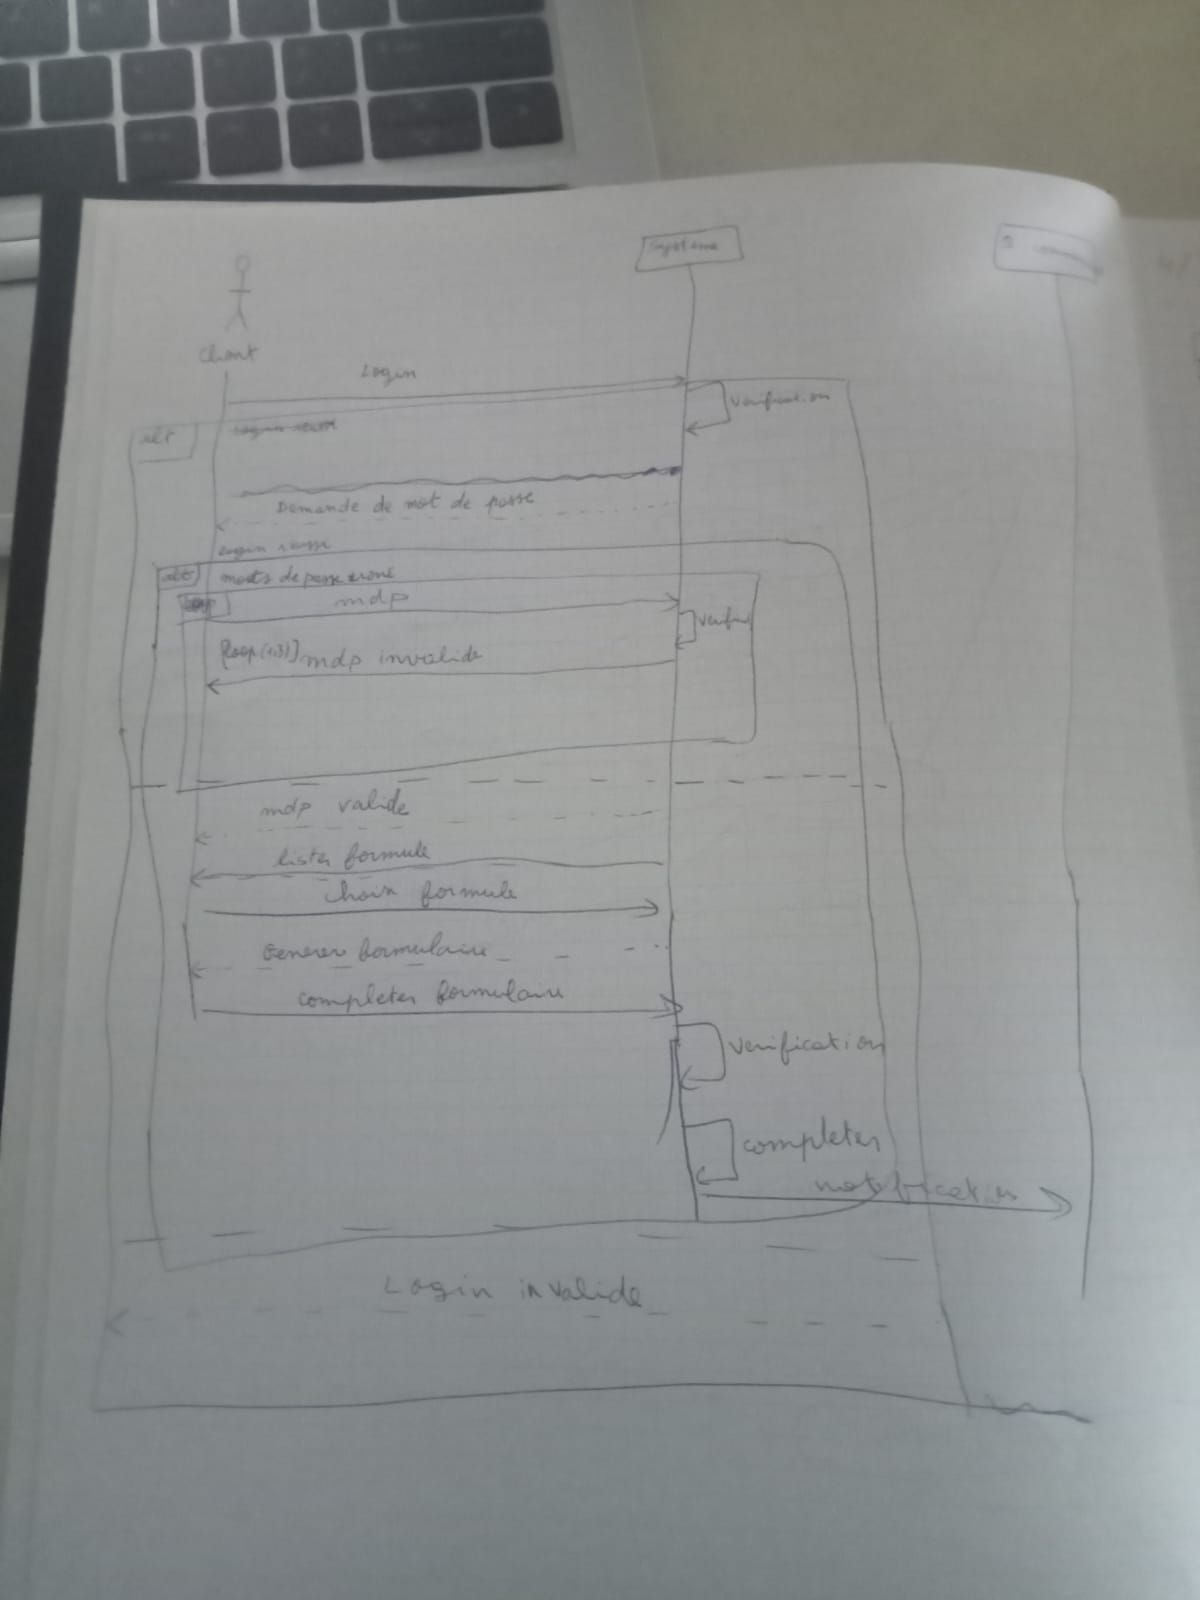 Système
Client
Login
verification
alt
Demande de mot de passe
Login reussi
alt
mdp
verifi
[loop(1,3)] mdp invalide
mdp valide
lister formule
choix formule
Generer formulaire
completer formulaire
verification
completer
notification
Login invalide